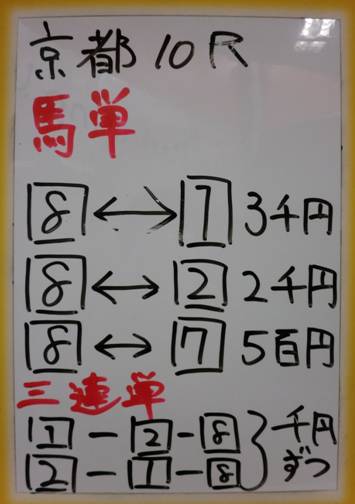 京都10R
馬単
8↔1 3千円
8↔2 2千円
8↔7 5百円
三連単
1-2-8
2-1-8 } 千円ずつ